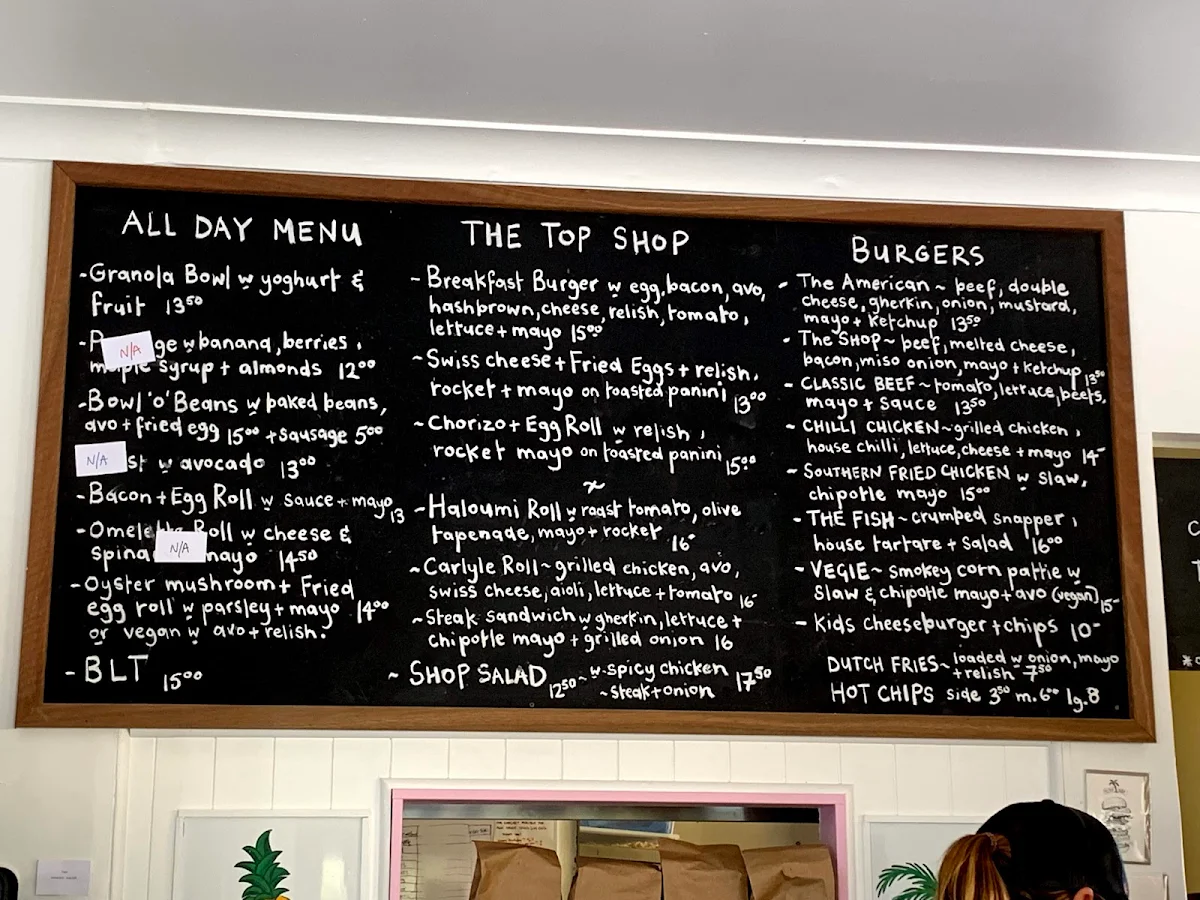 ALL DAY MENU
-Granola Bowl w yoghurt &
fruit 13⁵⁰
N/A
w banana, berries,
maple syrup + almonds 12⁰⁰
-Bowl 'o' Beans w baked beans,
avo + fried egg 15⁰⁰ + sausage 5⁰⁰
N/A w avocado 13⁰⁰
-Bacon + Egg Roll w sauce + mayo 13
-Omelette Roll w cheese &
N/A mayo 14⁵⁰
-Oyster mushroom + Fried
egg roll w parsley + mayo 14⁰⁰
or vegan w avo + relish.
-BLT 15⁰⁰
THE TOP SHOP
-Breakfast Burger w egg, bacon, avo,
hashbrown, cheese, relish, tomato,
lettuce + mayo 15⁰⁰
~Swiss cheese + Fried Eggs + relish,
rocket + mayo on toasted panini 13⁰⁰
~Chorizo + Egg Roll w relish,
rocket mayo on toasted panini 15⁰⁰
~
-Haloumi Roll w roast tomato, olive
tapenade, mayo + rocket 16-
~Carlyle Roll ~ grilled chicken, avo,
swiss cheese, aioli, lettuce + tomato 16-
~Steak sandwich w gherkin, lettuce +
chipotle mayo + grilled onion 16
~SHOP SALAD 12⁵⁰ ~ w spicy chicken 17⁵⁰
~steak + onion
BURGERS
- The American ~ beef, double
cheese, gherkin, onion, mustard,
mayo + ketchup 13⁵⁰
- The SHOP ~ beef, melted cheese,
bacon, miso onion, mayo + ketchup 13⁵⁰
- CLASSIC BEEF ~ tomato, lettuce, beets,
mayo + sauce 13⁵⁰
- CHILLI CHICKEN ~ grilled chicken,
house chilli, lettuce, cheese + mayo 14-
- SOUTHERN FRIED CHICKEN w slaw,
chipotle mayo 15⁰⁰
- THE FISH ~ crumbed snapper,
house tartare + salad 16⁰⁰
- VEGIE ~ smokey corn pattie w
slaw & chipotle mayo + avo (vegan) 15-
- Kids cheeseburger + chips 10-
DUTCH FRIES ~ loaded w onion, mayo
+ relish 7⁵⁰
HOT CHIPS side 3⁵⁰ m. 6⁰⁰ lg. 8